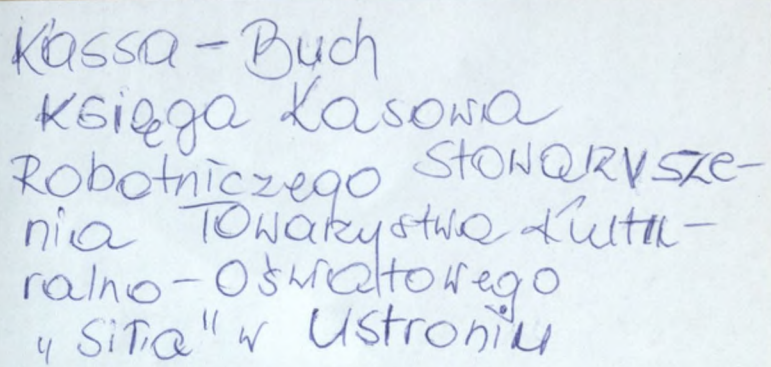 Kassa - Buch
Księga Kasowa
Robotniczego Stowarzysze-
nia Towarzystwa Kultu-
ralno - Oświatowego
„Siła" w Ustroniu